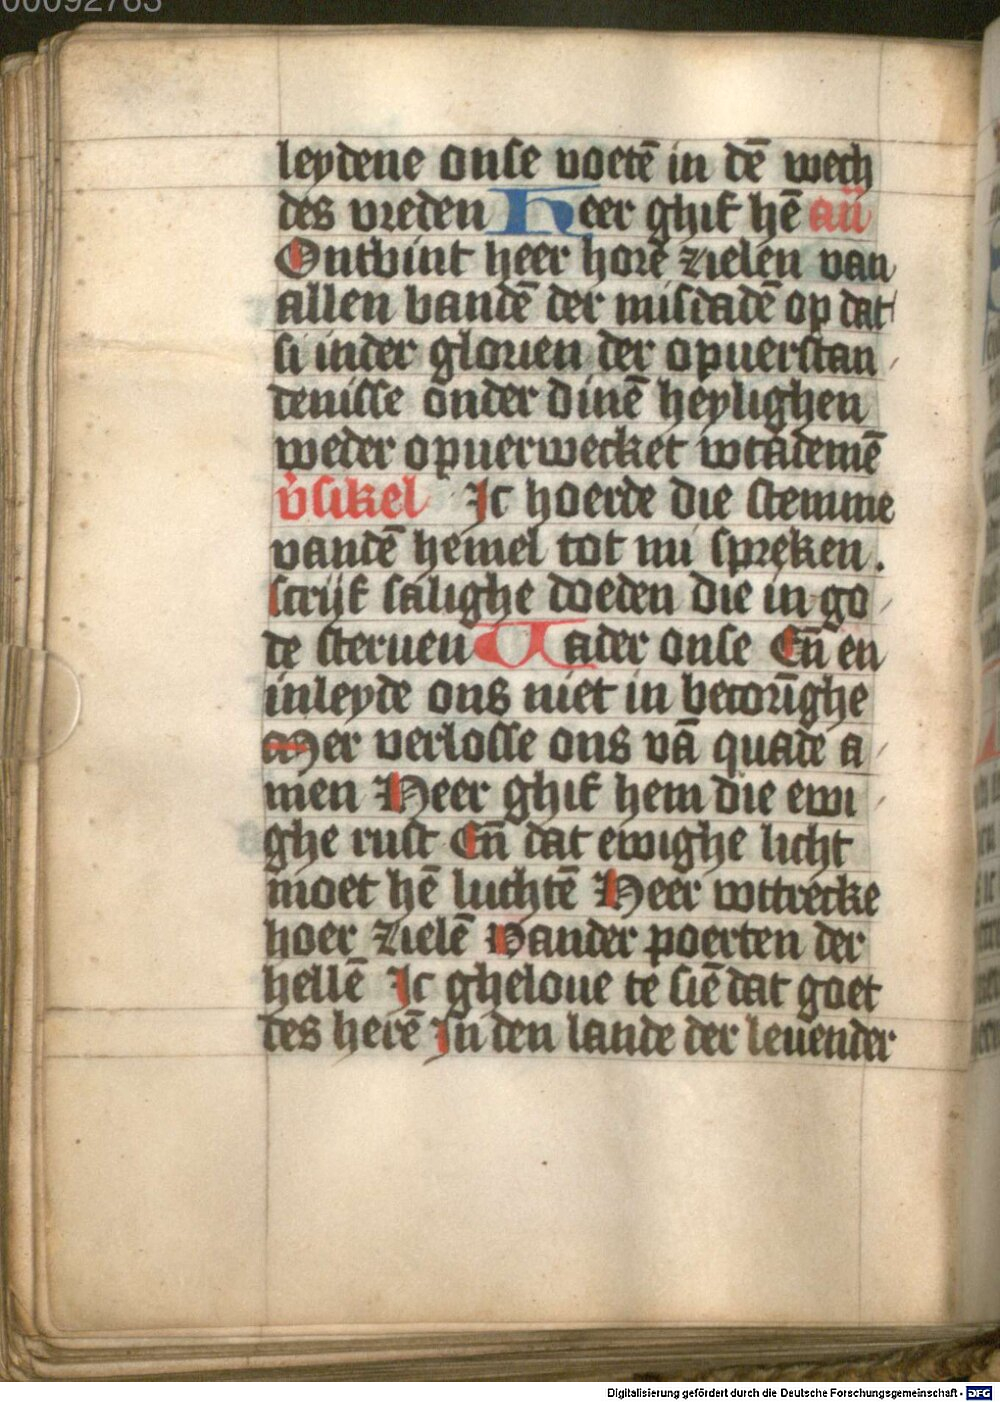 00092763
leydene onse voetē in dē wech
des vreden Heer ghif hē añ
Ontbint heer hore zielen van
allen bandē der misdadē op dat
si inder glorien der opuerstan
denisse onder dinē heylighen
weder opuerwecket wtademē
v̾sikel Ic hoerde die stemme
vandē hemel tot mi spreken.
scrijf salighe doeden die in go
de steruen Uader onse Eñ en
inleyde ons niet in becorīghe
Mer verlosse ons vā quade a
men Heer ghif hem die ewi
ghe rust Eñ dat ewighe licht
moet hē luchtē Heer wttrecke
hoer zielē Vander poerten der
hellē Ic gheloue te siē dat goet
des herē In den lande der leuender
Digitalisierung gefördert durch die Deutsche Forschungsgemeinschaft - DFG